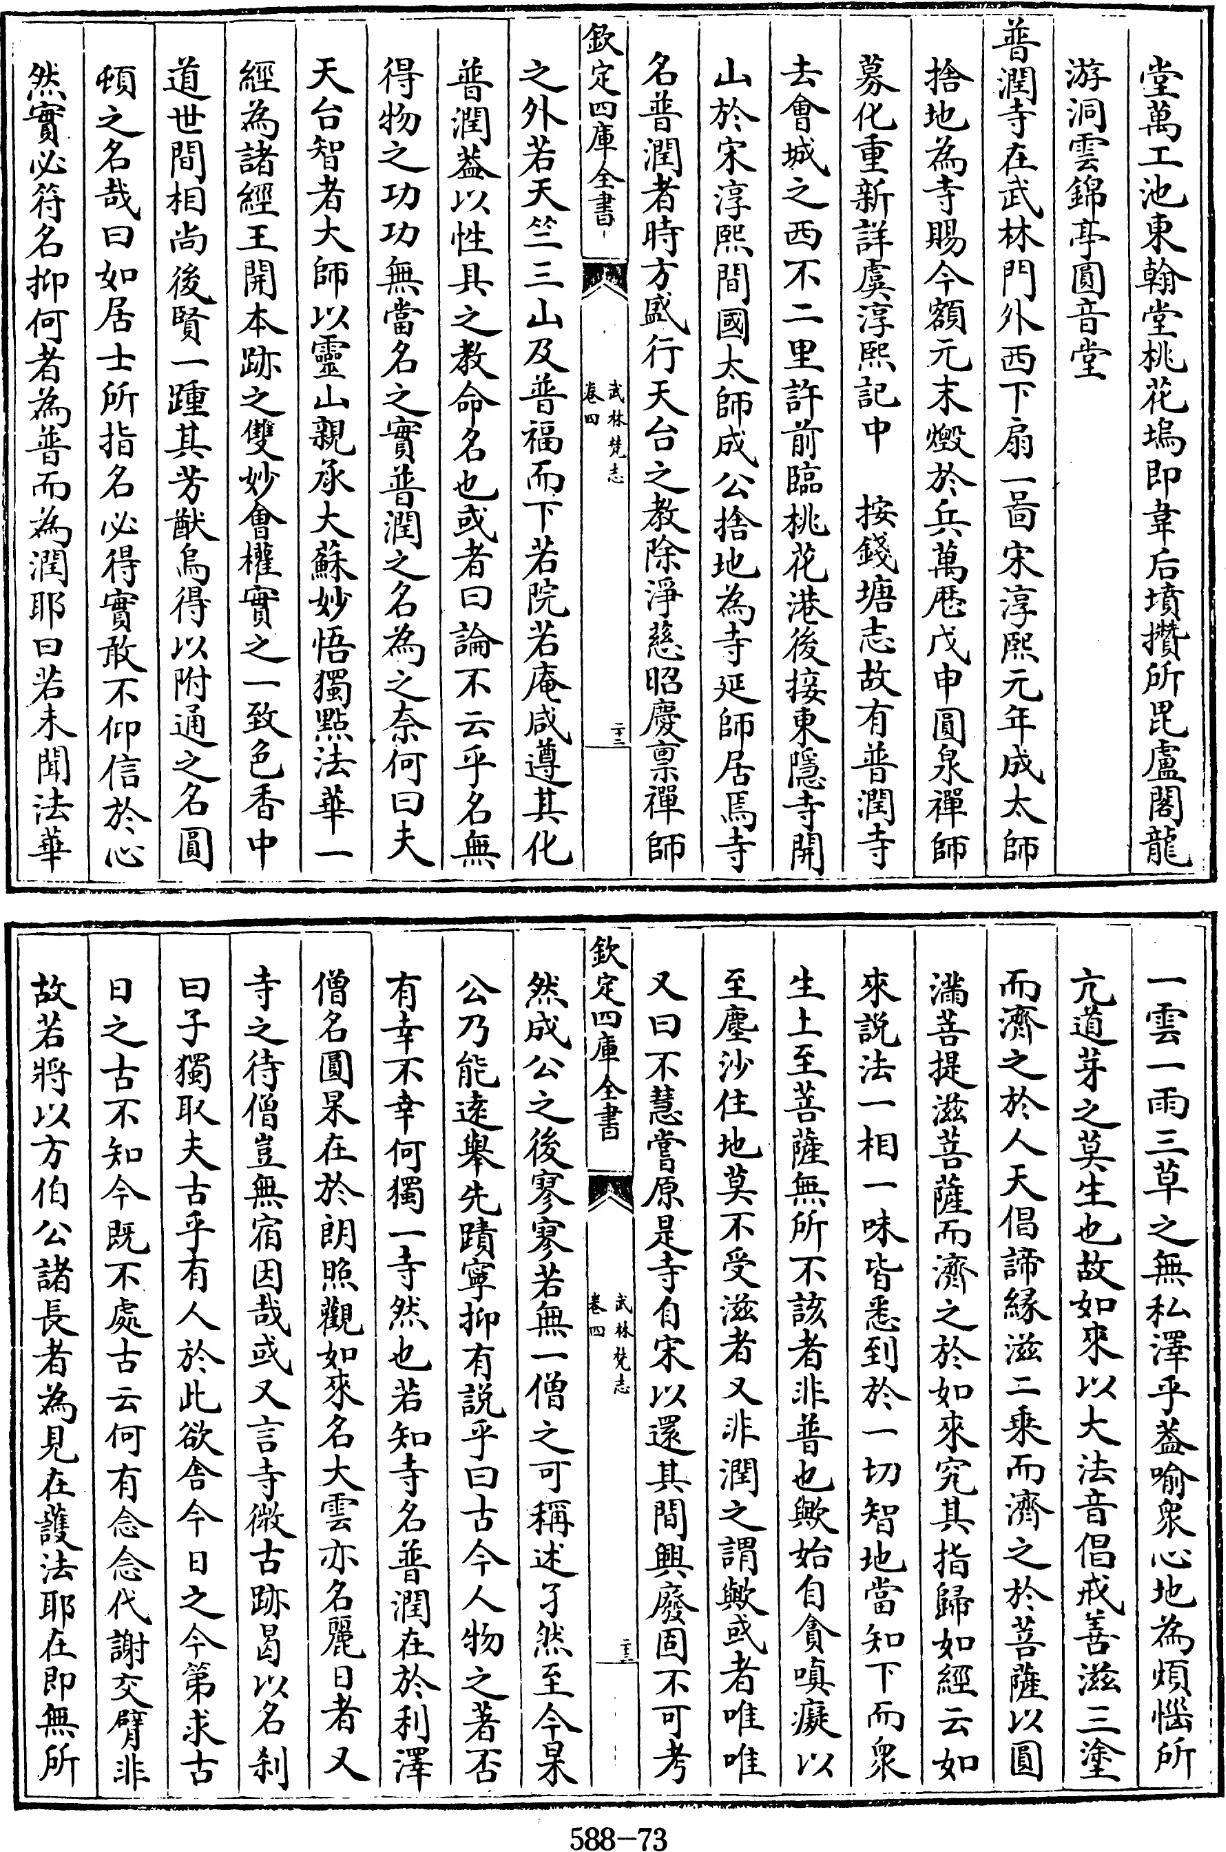 堂萬工池東翰堂桃花塢即韋后墳攢所毘盧閣龍
游洞雲錦亭圓音堂
普潤寺在武林門外西下扇一啚宋淳熙元年成太師
捨地為寺賜今額元末燬於兵萬厯戊申圓泉禪師
募化重新詳虞淳熙記中　按錢塘志故有普潤寺
去會城之西不二里許前臨桃花港後接東隱寺開
山於宋淳熙間國太師成公捨地為寺延師居焉寺
名普潤者時方盛行天台之教除淨慈昭慶禀禪師
欽定四庫全書
武林梵志
卷四
二十二
之外若天竺三山及普福而下若院若庵咸遵其化
普潤葢以性具之教命名也或者曰論不云乎名無
得物之功功無當名之實普潤之名為之奈何曰夫
天台智者大師以靈山親承大蘇妙悟獨㸃法華一
經為諸經王開本跡之雙妙會權實之一致色香中
道世間相尚後賢一踵其芳猷烏得以附通之名圓
頓之名哉曰如居士所指名必得實敢不仰信於心
然實必符名抑何者為普而為潤耶曰若未聞法華
一雲一雨三草之無私澤乎葢喻衆心地為煩惱所
亢道芽之莫生也故如來以大法音倡戒善滋三塗
而濟之於人天倡諦緣滋二乘而濟之於菩薩以圓
滿菩提滋菩薩而濟之於如來究其指歸如經云如
來説法一相一味皆悉到於一切智地當知下而衆
生上至菩薩無所不該者非普也歟始自貪嗔癡以
至塵沙住地莫不受滋者又非潤之謂歟或者唯唯
又曰不慧嘗原是寺自宋以還其間興廢固不可考
欽定四庫全書
武林梵志
卷四
二十三
然成公之後寥寥若無一僧之可稱述孑然至今杲
公乃能逺舉先蹟寧抑有説乎曰古今人物之著否
有幸不幸何獨一寺然也若知寺名普潤在於利澤
僧名圓杲在於朗照觀如來名大雲亦名麗日者又
寺之待僧豈無宿因哉或又言寺微古跡曷以名刹
曰子獨取夫古乎有人於此欲舎今日之今第求古
日之古不知今既不處古云何有念念代謝交臂非
故若將以方伯公諸長者為見在護法耶在即無所
588-73